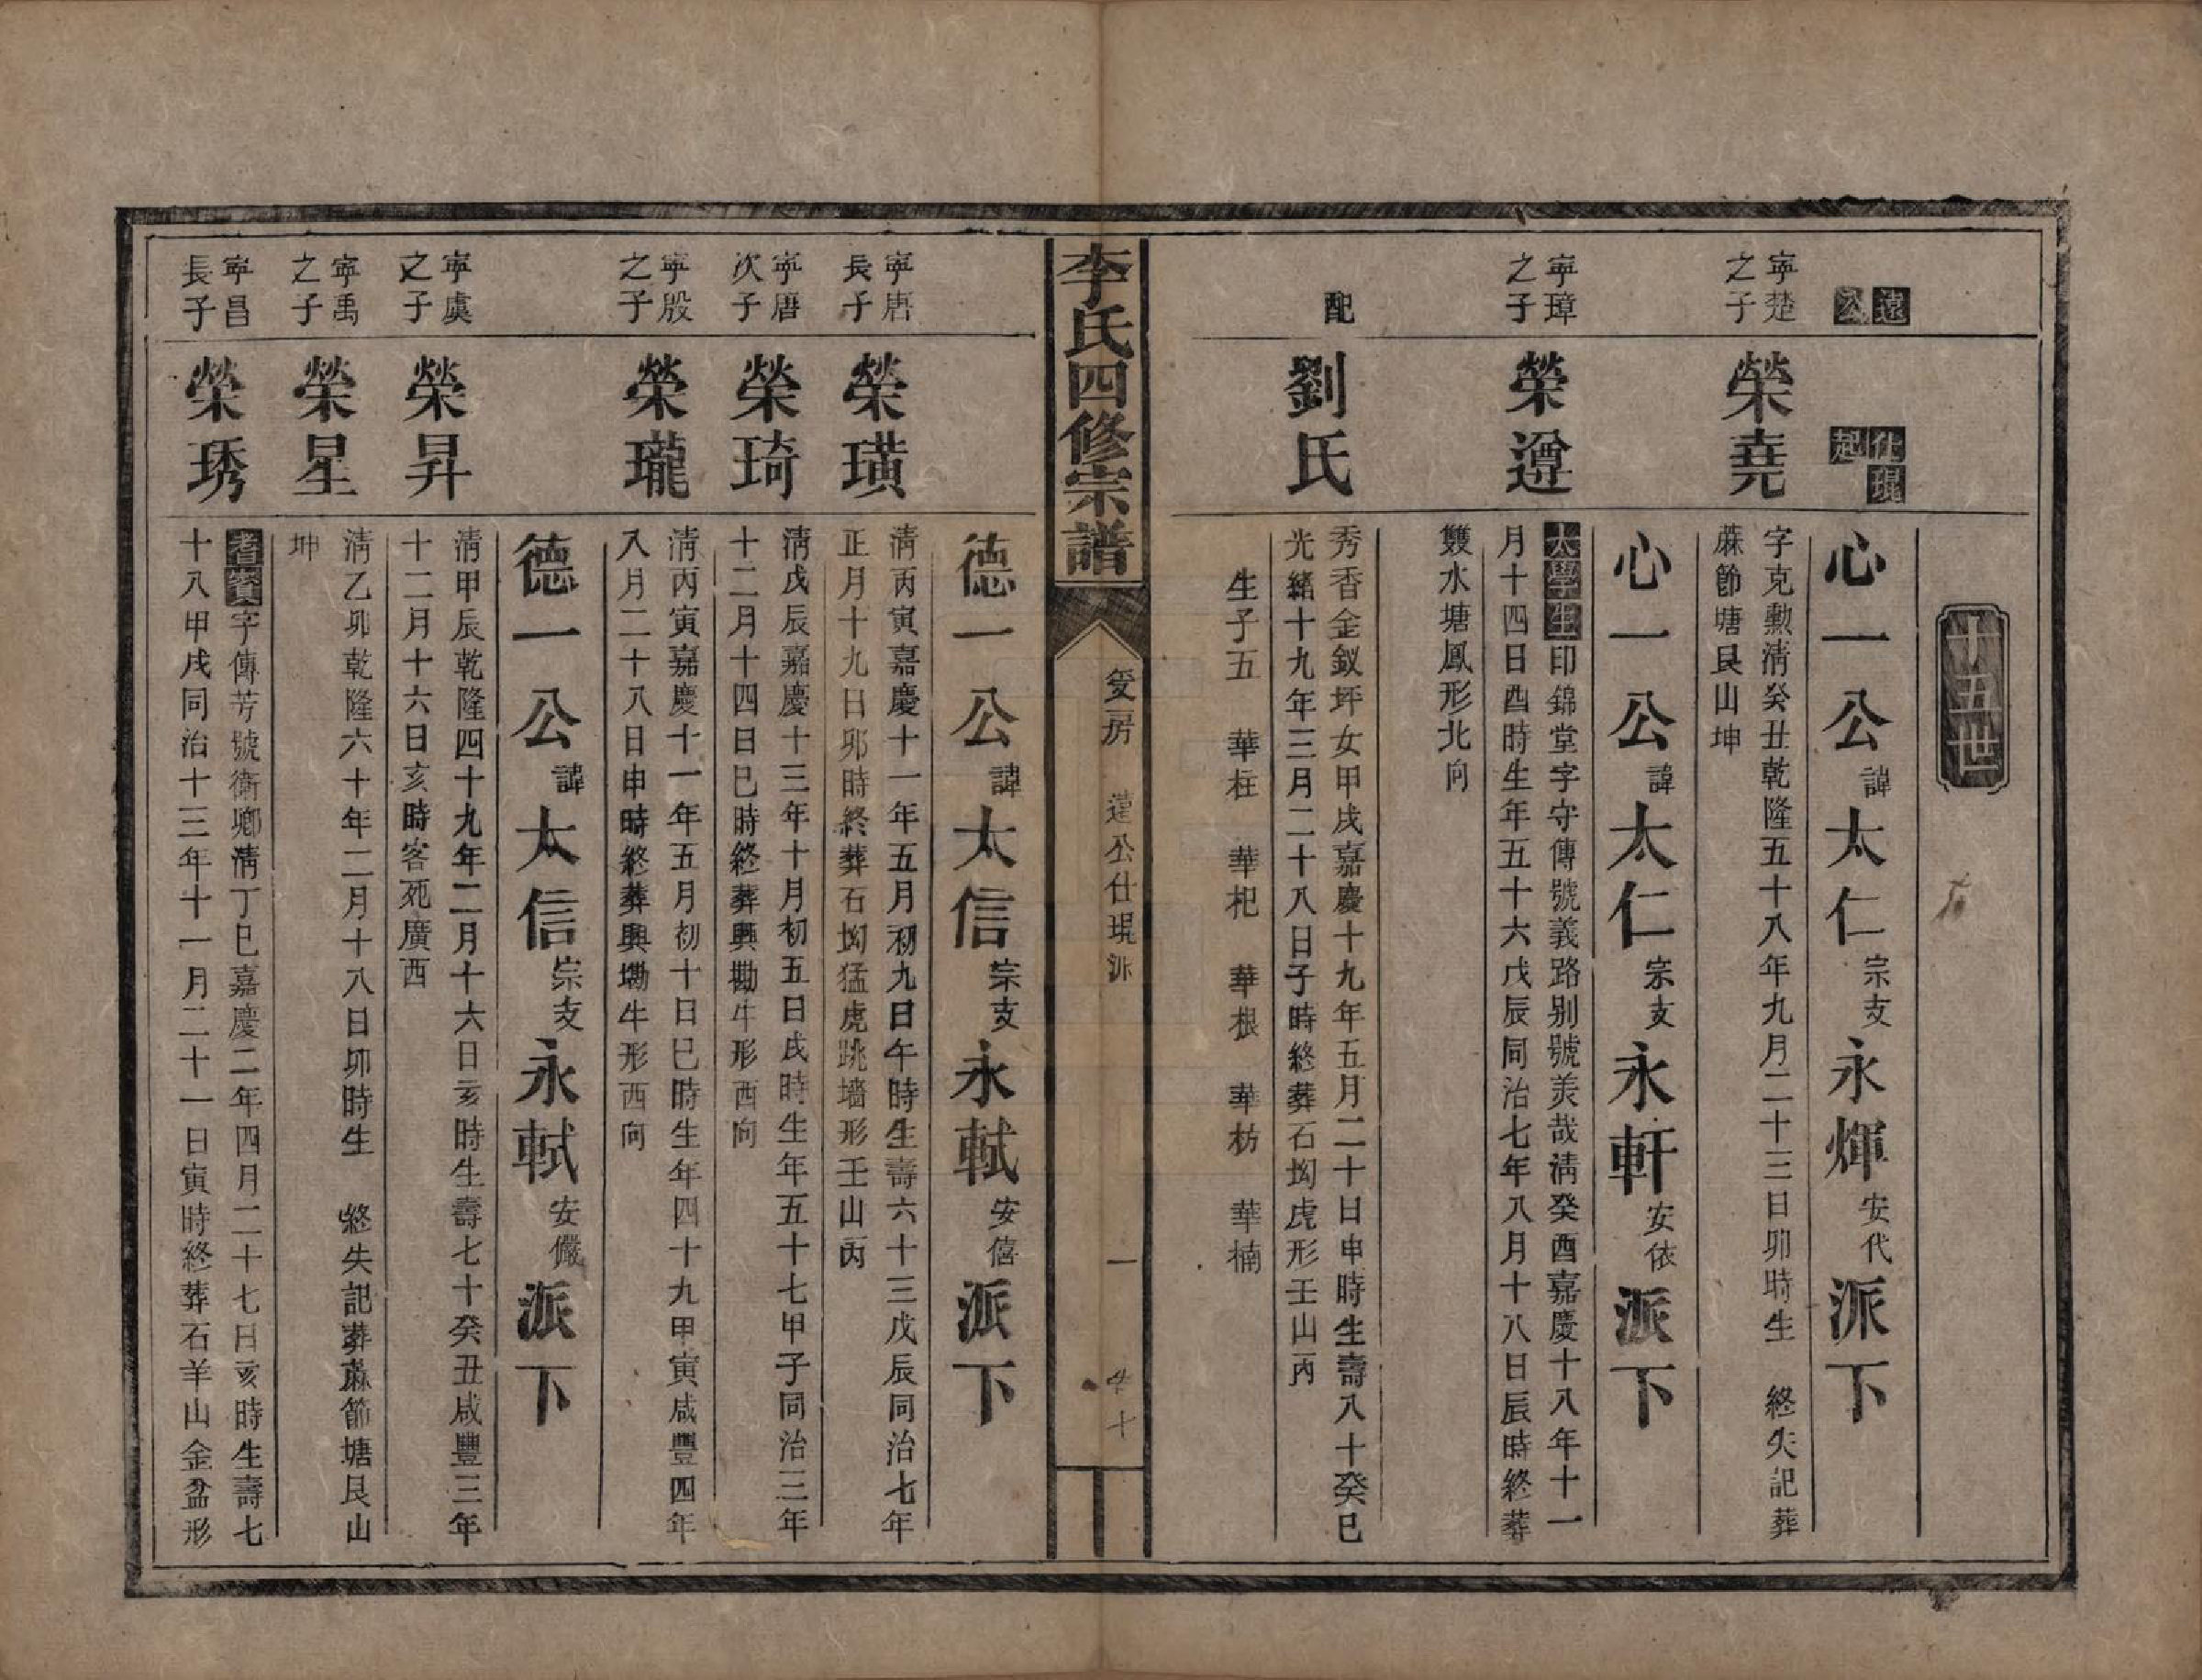 十五世
遠公
仕琨起
心一公諱太仁宗支永煇安代派下
寧楚之子
榮堯
字克勲清癸丑乾隆五十八年九月二十三日卯時生 終失記葬
蔴節塘艮山坤
心一公諱太仁宗支永軒安依派下
寧璋之子
榮遵
太學生印錦堂字守傳號義路别號美哉清癸酉嘉慶十八年十一
月十四日酉時生年五十六戊辰同治七年八月十八日辰時終葬
雙水塘鳳形北向
配
劉氏
秀香金釵坪女甲戌嘉慶十九年五月二十日申時生壽八十癸巳
光緒十九年三月二十八日子時終葬石坳虎形壬山丙
生子五 華枉 華杞 華根 華枋 華楠
李氏四修宗譜
爰房 遠公仕琨派
一
德一公諱太信宗支永軾安僖派下
寧唐長子
榮璜
清丙寅嘉慶十一年五月初九日午時生壽六十三戊辰同治七年
正月十九日卯時終葬石坳猛虎跳墻形壬山丙
寧唐次子
榮琦
清戊辰嘉慶十三年十月初五日戌時生年五十七甲子同治三年
十二月十四日巳時終葬興墈牛形酉向
寧殷之子
榮瓏
清丙寅嘉慶十一年五月初十日巳時生年四十九甲寅咸豐四年
八月二十八日申時終葬興墈牛形西向
德一公諱太信宗支永軾安儼派下
寧虞之子
榮昇
清甲辰乾隆四十九年二月十六日亥時生壽七十癸丑咸豐三年
十二月十六日亥時客死廣西
寧禹之子
榮星
清乙卯乾隆六十年二月十八日卯時生 終失記葬蔴節塘艮山
坤
寧昌長子
榮琇
耆賓字傳芳號衛卿清丁巳嘉慶二年四月二十七日亥時生壽七
十八甲戌同治十三年十一月二十一日寅時終葬石羊山金盆形